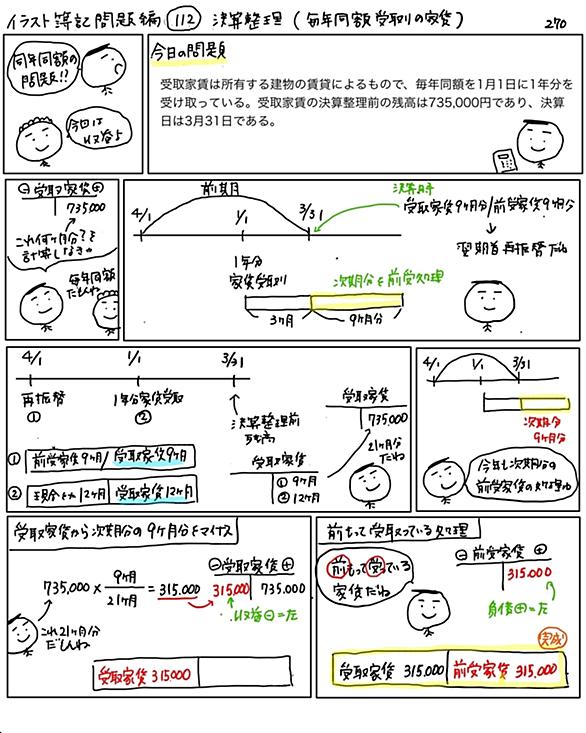 イラスト簿記問題編 112 決算整理（毎年同額受取りの家賃） 270
同年同額の
問題!?
今回は
収益よ
今日の問題
受取家賃は所有する建物の賃貸によるもので、毎年同額を1月1日に1年分を
受け取っている。受取家賃の決算整理前の残高は735,000円であり、決算
日は3月31日である。
⊖ 受取家賃 ⊕
735.000
これ何ヶ月分？を
計算しなきゃ
毎年同額
だもんね
前期
4/1
1/1
3/31
1年分
家賃受取り
3ヶ月
9ヶ月分
次期分を前受処理
決算時
受取家賃9ヶ月分/前受家賃9ヶ月分
翌期首再振替だね
4/1
1/1
3/31
再振替
①
1年分家賃受取
②
決算整理前
残高
① 前受家賃9ヶ月/受取家賃9ヶ月
② 現金など12ヶ月 受取家賃12ヶ月
受取家賃
① 9ヶ月
② 12ヶ月
受取家賃
735.000
21ヶ月分
だね
4/1
1/1
3/31
次期分
9ヶ月分
今年も次期分の
前受家賃の処理ね
受取家賃から次期分の9ヶ月分をマイナス
735,000 × 9ヶ月/21ヶ月 = 315.000
⊖ 受取家賃 ⊕
315.000 735.000
収益⊖=左
これ21ヶ月分
だもんね
受取家賃 315.000
前もって受取っている処理
前もって受ている
家賃だね
⊖ 前受家賃 ⊕
315.000
負債⊕=右
完成
受取家賃 315.000 前受家賃 315.000